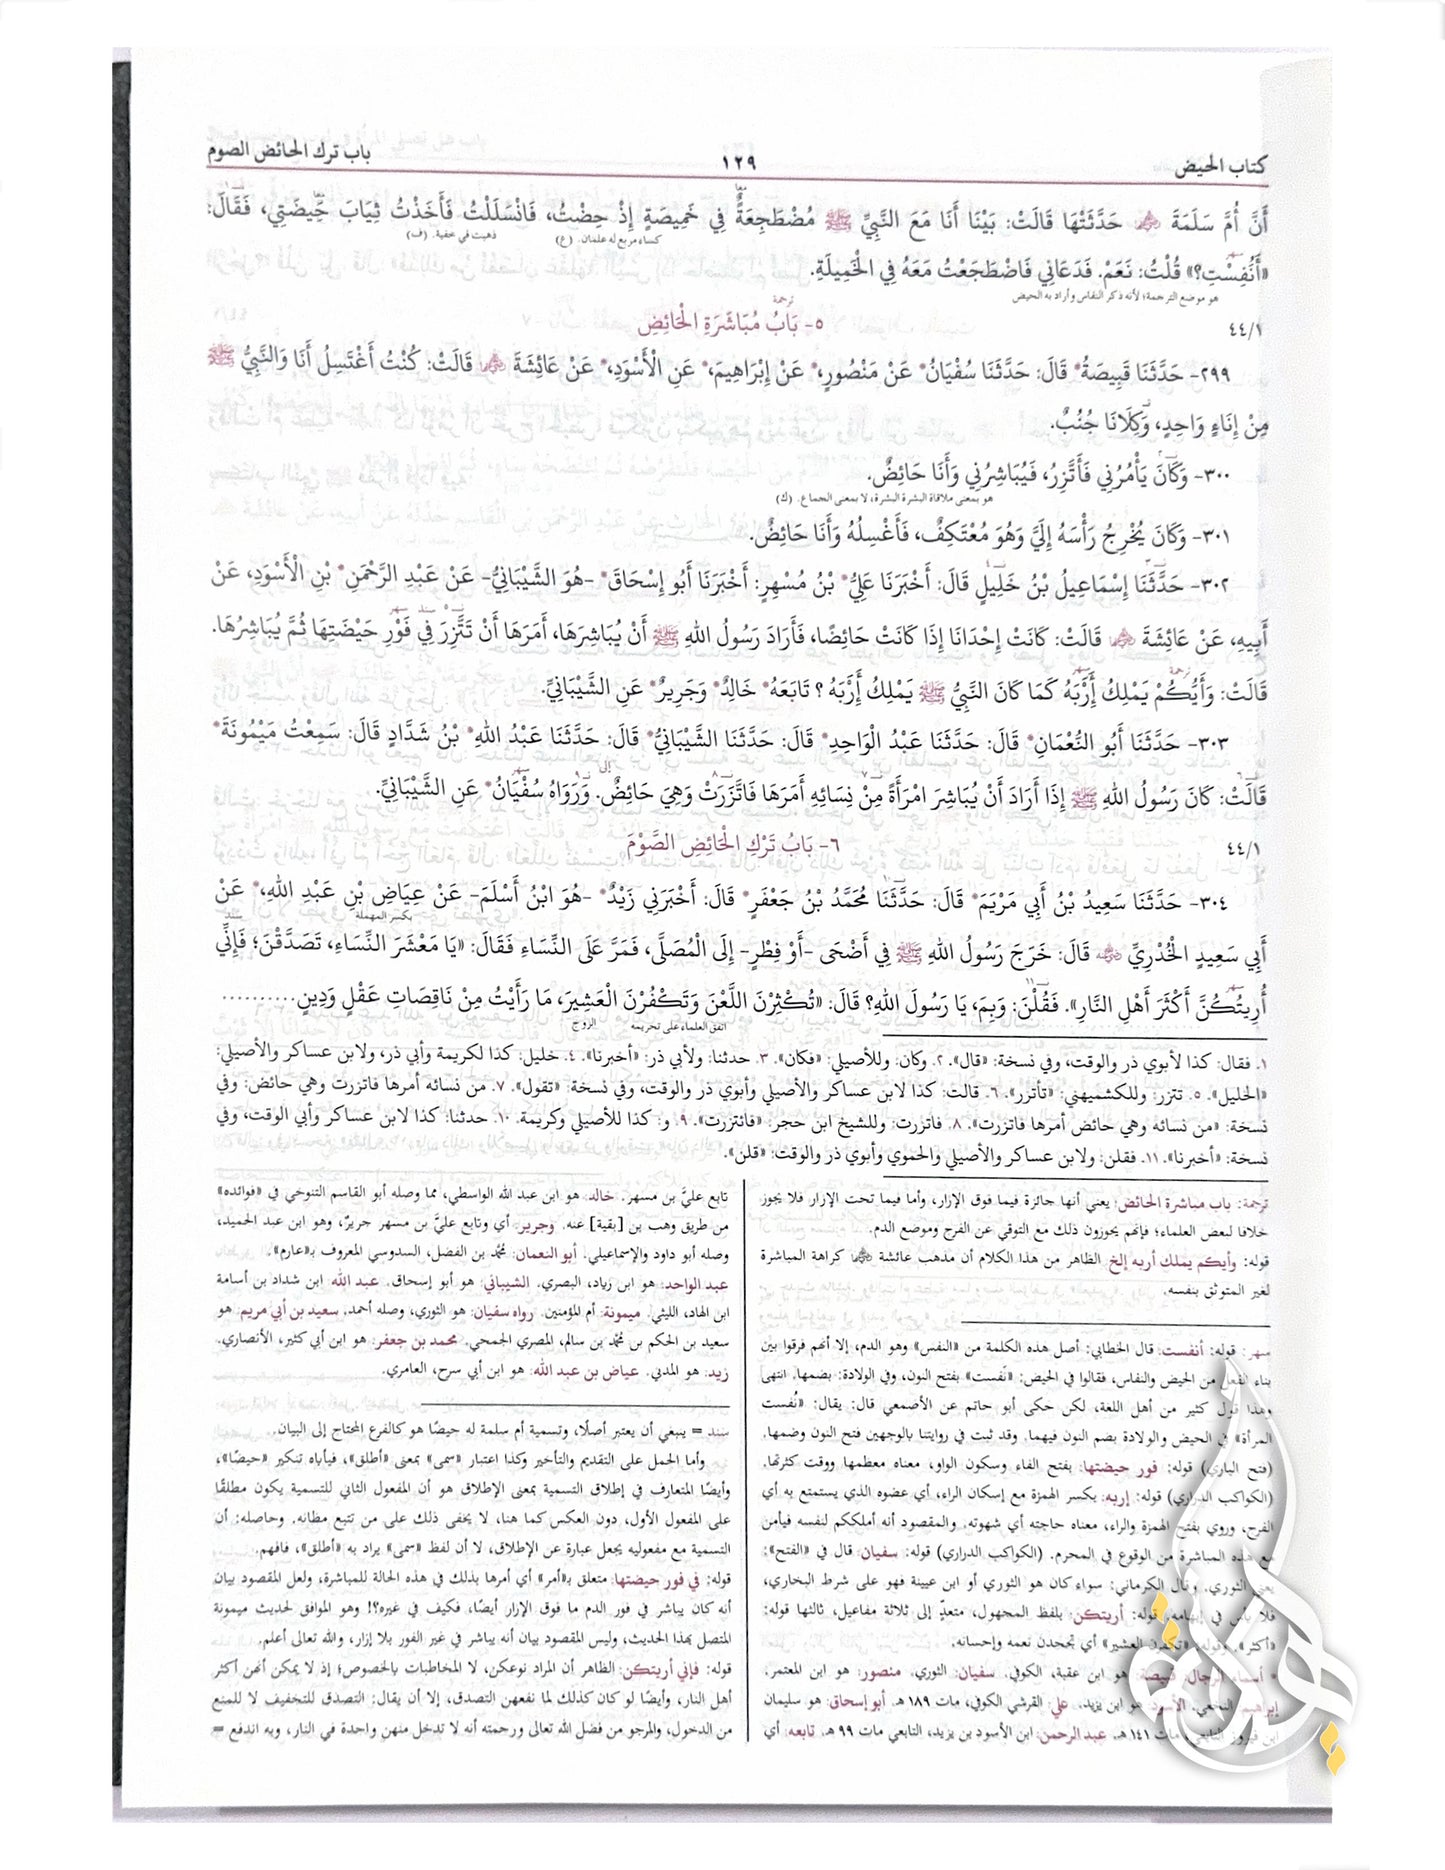 كتاب الحيض
١٢٩
باب ترك الحائض الصوم
أَنَّ أُمَّ سَلَمَةَ حَدَّثَتْهَا قَالَتْ: بَيْنَا أَنَا مَعَ النَّبِيِّ ﷺ مُضْطَجِعَةٌ فِي خَمِيصَةٍ إِذْ حِضْتُ، فَانْسَلَلْتُ فَأَخَذْتُ ثِيَابَ حِيضَتِي، فَقَالَ:
كساء مربع له علمان. (ع) ذهبت في خفية. (ف)
«أَنُفِسْتِ؟» قُلْتُ: نَعَمْ. فَدَعَانِي فَاضْطَجَعْتُ مَعَهُ فِي الْخَمِيلَةِ.
هو موضع الترجمة؛ لأنه ذكر النفاس وأراد به الحيض
٤٤/١ ٥- بَابُ مُبَاشَرَةِ الْحَائِضِ
٢٩٩- حَدَّثَنَا قَبِيصَةُ* قَالَ: حَدَّثَنَا سُفْيَانُ* عَنْ مَنْصُورٍ،* عَنْ إِبْرَاهِيمَ،* عَنِ الْأَسْوَدِ،* عَنْ عَائِشَةَ قَالَتْ: كُنْتُ أَغْتَسِلُ أَنَا وَالنَّبِيُّ ﷺ
مِنْ إِنَاءٍ وَاحِدٍ، وَكِلَانَا جُنُبٌ.
٣٠٠- وَكَانَ يَأْمُرُنِي فَأَتَّزِرُ، فَيُبَاشِرُنِي وَأَنَا حَائِضٌ.
هو بمعنى ملاقاة البشرة البشرة، لا بمعنى الجماع. (ك)
٣٠١- وَكَانَ يُخْرِجُ رَأْسَهُ إِلَيَّ وَهُوَ مُعْتَكِفٌ، فَأَغْسِلُهُ وَأَنَا حَائِضٌ.
٣٠٢- حَدَّثَنَا إِسْمَاعِيلُ بْنُ خَلِيلٍ قَالَ: أَخْبَرَنَا عَلِيُّ* بْنُ مُسْهِرٍ: أَخْبَرَنَا أَبُو إِسْحَاقَ* -هُوَ الشَّيْبَانِيُّ- عَنْ عَبْدِ الرَّحْمَنِ* بْنِ الْأَسْوَدِ، عَنْ
أَبِيهِ، عَنْ عَائِشَةَ قَالَتْ: كَانَتْ إِحْدَانَا إِذَا كَانَتْ حَائِضًا، فَأَرَادَ رَسُولُ اللهِ ﷺ أَنْ يُبَاشِرَهَا، أَمَرَهَا أَنْ تَتَّزِرَ فِي فَوْرِ حَيْضَتِهَا ثُمَّ يُبَاشِرُهَا.
قَالَتْ: وَأَيُّكُمْ يَمْلِكُ إِرْبَهُ كَمَا كَانَ النَّبِيُّ ﷺ يَمْلِكُ إِرْبَهُ؟ تَابَعَهُ* خَالِدٌ* وَجَرِيرٌ* عَنِ الشَّيْبَانِيِّ.
٣٠٣- حَدَّثَنَا أَبُو النُّعْمَانِ* قَالَ: حَدَّثَنَا عَبْدُ الْوَاحِدِ* قَالَ: حَدَّثَنَا الشَّيْبَانِيُّ* قَالَ: حَدَّثَنَا عَبْدُ اللهِ* بْنُ شَدَّادٍ قَالَ: سَمِعْتُ مَيْمُونَةَ*
قَالَتْ: كَانَ رَسُولُ اللهِ ﷺ إِذَا أَرَادَ أَنْ يُبَاشِرَ امْرَأَةً مِنْ نِسَائِهِ أَمَرَهَا فَاتَّزَرَتْ وَهِيَ حَائِضٌ. وَرَوَاهُ سُفْيَانُ* عَنِ الشَّيْبَانِيِّ.
٤٤/١ ٦- بَابُ تَرْكِ الْحَائِضِ الصَّوْمَ
٣٠٤- حَدَّثَنَا سَعِيدُ بْنُ أَبِي مَرْيَمَ* قَالَ: حَدَّثَنَا مُحَمَّدُ بْنُ جَعْفَرٍ* قَالَ: أَخْبَرَنِي زَيْدٌ* -هُوَ ابْنُ أَسْلَمَ- عَنْ عِيَاضِ بْنِ عَبْدِ اللهِ،* عَنْ
بكسر المهملة
أَبِي سَعِيدٍ الْخُدْرِيِّ قَالَ: خَرَجَ رَسُولُ اللهِ ﷺ فِي أَضْحَى -أَوْ فِطْرٍ- إِلَى الْمُصَلَّى، فَمَرَّ عَلَى النِّسَاءِ فَقَالَ: «يَا مَعْشَرَ النِّسَاءِ، تَصَدَّقْنَ؛ فَإِنِّي
أُرِيتُكُنَّ أَكْثَرَ أَهْلِ النَّارِ». فَقُلْنَ: وَبِمَ، يَا رَسُولَ اللهِ؟ قَالَ: «تُكْثِرْنَ اللَّعْنَ وَتَكْفُرْنَ الْعَشِيرَ، مَا رَأَيْتُ مِنْ نَاقِصَاتِ عَقْلٍ وَدِينٍ..........
اتفق العلماء على تحريمه الزوج
١. فقال: كذا لأبوي ذر والوقت، وفي نسخة: «قال». ٢. وكان: وللأصيلي: «فكان». ٣. حدثنا: ولأبي ذر: «أخبرنا». ٤. خليل: كذا لكريمة وأبي ذر، ولابن عساكر والأصيلي:
«الخليل». ٥. تتزر: وللكشميهني: «تأتزر». ٦. قالت: كذا لابن عساكر والأصيلي وأبوي ذر والوقت، وفي نسخة: «تقول». ٧. من نسائه أمرها فاتزرت وهي حائض: وفي
نسخة: «من نسائه وهي حائض أمرها فاتزرت». ٨. فاتزرت: وللشيخ ابن حجر: «فائتزرت». ٩. و: كذا للأصيلي وكريمة. ١٠. حدثنا: كذا لابن عساكر وأبي الوقت، وفي
نسخة: «أخبرنا». ١١. فقلن: ولابن عساكر والأصيلي والحموي وأبوي ذر والوقت: «قلن».
ترجمة: باب مباشرة الحائض: يعني أنها جائزة فيما فوق الإزار، وأما فيما تحت الإزار فلا يجوز
خلافا لبعض العلماء؛ فإنهم يجوزون ذلك مع التوقي عن الفرج وموضع الدم.
قوله: وأيكم يملك أربه إلخ: الظاهر من هذا الكلام أن مذهب عائشة كراهة المباشرة
لغير المتوثق بنفسه.
سهر: قوله: أنفست: قال الخطابي: أصل هذه الكلمة من «النفس» وهو الدم، إلا أنهم فرقوا بين
بناء الفعل من الحيض والنفاس، فقالوا في الحيض: «نَفست» بفتح النون، وفي الولادة: بضمها. انتهى
وهذا قول كثير من أهل اللغة، لكن حكى أبو حاتم عن الأصمعي قال: يقال: «نُفست
المرأة» في الحيض والولادة بضم النون فيهما. وقد ثبت في روايتنا بالوجهين فتح النون وضمها.
(فتح الباري) قوله: فور حيضتها: بفتح الفاء وسكون الواو، معناه معظمها ووقت كثرتها.
(الكواكب الدراري) قوله: إربه: بكسر الهمزة مع إسكان الراء، أي عضوه الذي يستمتع به أي
الفرج، وروي بفتح الهمزة والراء، معناه حاجته أي شهوته. والمقصود أنه أملككم لنفسه فيأمن
مع هذه المباشرة من الوقوع في المحرم. (الكواكب الدراري) قوله: سفيان: قال في «الفتح»:
يعني الثوري. وقال الكرماني: سواء كان هو الثوري أو ابن عيينة فهو على شرط البخاري،
فلا بأس في إبهامه. قوله: أريتكن: بلفظ المجهول، متعدٍ إلى ثلاثة مفاعيل، ثالثها قوله:
«أكثر». وقوله: «تكفرن العشير» أي تجحدن نعمه وإحسانه.
* أسماء الرجال: قبيصة: هو ابن عقبة، الكوفي. سفيان: الثوري. منصور: هو ابن المعتمر.
إبراهيم: النخعي. الأسود: هو ابن يزيد. علي: القرشي الكوفي، مات ١٨٩ هـ. أبو إسحاق: هو سليمان
ابن فيروز التابعي، مات ١٤١ هـ. عبد الرحمن: ابن الأسود بن يزيد، التابعي مات ٩٩ هـ. تابعه: أي
تابع عليَّ بن مسهر. خالد: هو ابن عبد الله الواسطي، مما وصله أبو القاسم التنوخي في «فوائده»
من طريق وهب بن [بقية] عنه. وجرير: أي وتابع عليَّ بن مسهر جريرٌ، وهو ابن عبد الحميد،
وصله أبو داود والإسماعيلي. أبو النعمان: محمد بن الفضل، السدوسي المعروف بـ«عارم».
عبد الواحد: هو ابن زياد، البصري. الشيباني: هو أبو إسحاق. عبد الله: ابن شداد بن أسامة
ابن الهاد، الليثي. ميمونة: أم المؤمنين. رواه سفيان: هو الثوري، وصله أحمد. سعيد بن أبي مريم: هو
سعيد بن الحكم بن محمد بن سالم، المصري الجمحي. محمد بن جعفر: هو ابن أبي كثير، الأنصاري.
زيد: هو المدني. عياض بن عبد الله: هو ابن أبي سرح، العامري.
سند = ينبغي أن يعتبر أصلًا، وتسمية أم سلمة له حيضًا هو كالفرع المحتاج إلى البيان.
وأما الحمل على التقديم والتأخير وكذا اعتبار «سمى» بمعنى «أطلق»، فيأباه تنكير «حيضًا»،
وأيضًا المتعارف في إطلاق التسمية بمعنى الإطلاق هو أن المفعول الثاني للتسمية يكون مطلقًا
على المفعول الأول، دون العكس كما هنا، لا يخفى ذلك على من تتبع مظانه. وحاصله: أن
التسمية مع مفعوليه يجعل عبارة عن الإطلاق، لا أن لفظ «سمى» يراد به «أطلق»، فافهم.
قوله: في فور حيضتها: متعلق بـ«أمر» أي أمرها بذلك في هذه الحالة للمباشرة، ولعل المقصود بيان
أنه كان يباشر في فور الدم ما فوق الإزار أيضًا، فكيف في غيره؟! وهو الموافق لحديث ميمونة
المتصل بهذا الحديث، وليس المقصود بيان أنه يباشر في غير الفور بلا إزار، والله تعالى أعلم.
قوله: فإني أريتكن: الظاهر أن المراد نوعكن، لا المخاطبات بالخصوص؛ إذ لا يمكن أنهن أكثر
أهل النار، وأيضًا لو كان كذلك لما نفعهن التصدق، إلا أن يقال: التصدق للتخفيف لا للمنع
من الدخول، والمرجو من فضل الله تعالى ورحمته أنه لا تدخل منهن واحدة في النار، وبه اندفع =